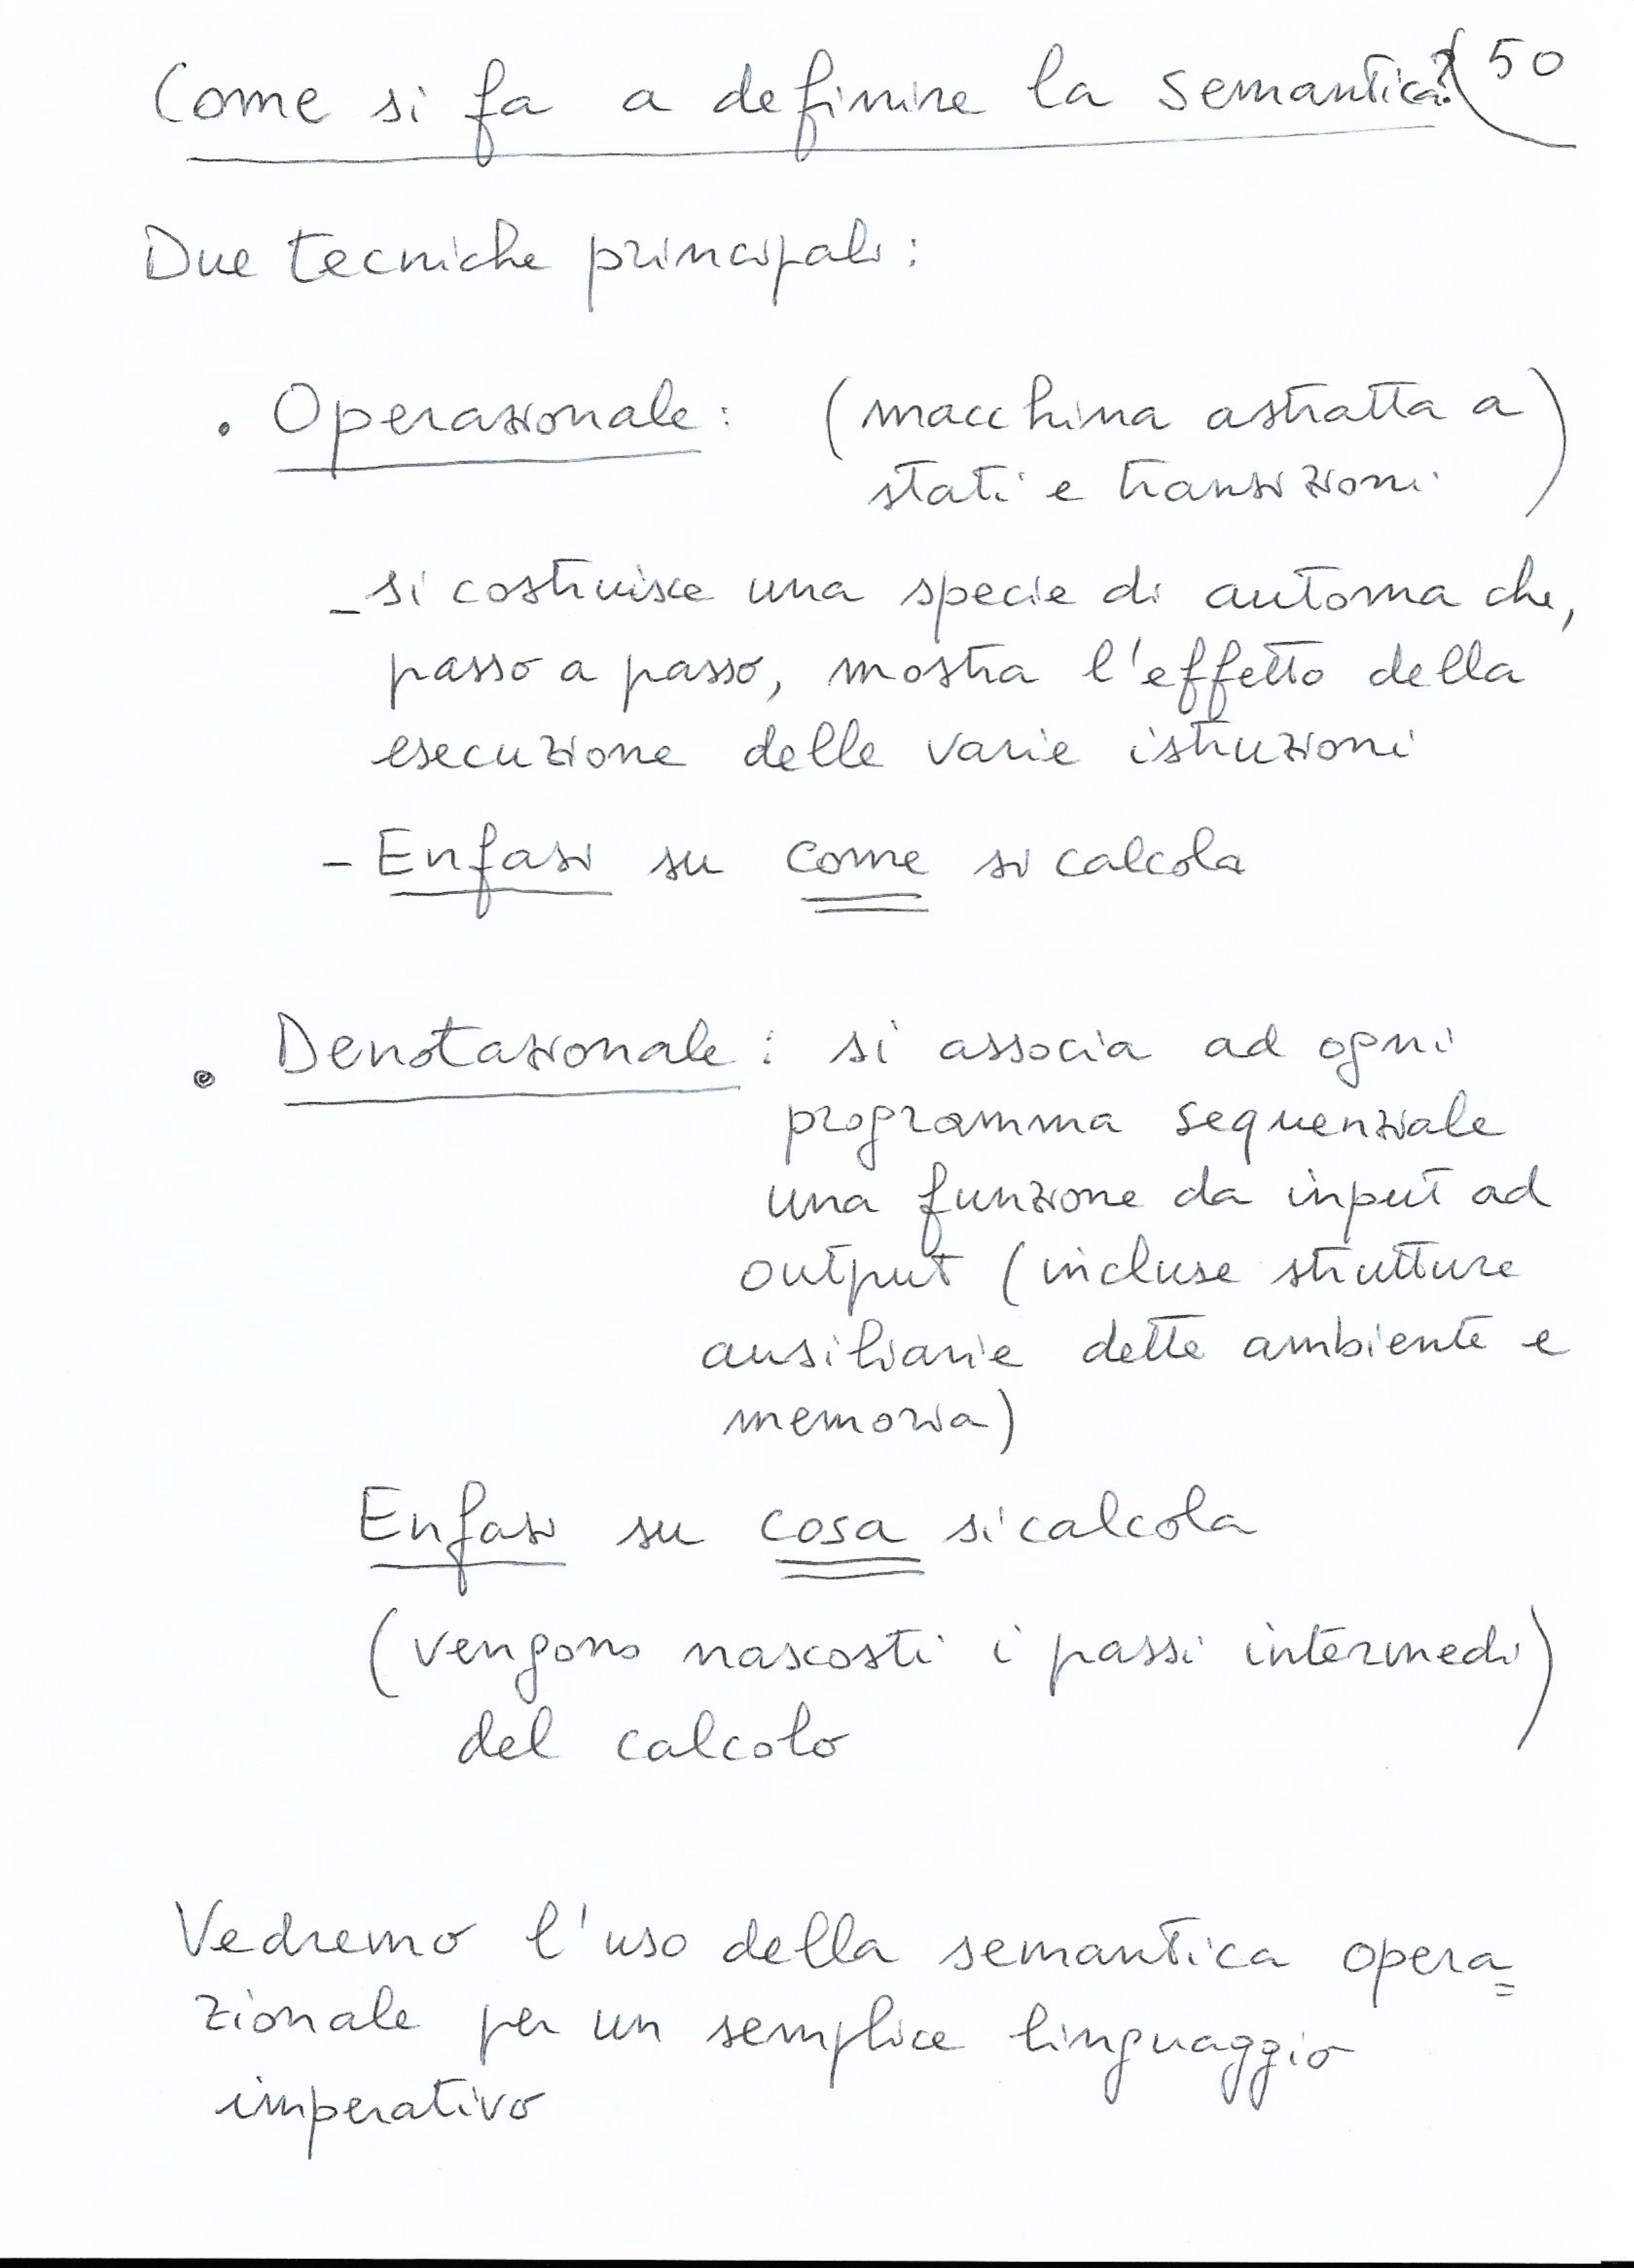 Come si fa a definire la semantica? 50
Due tecniche principali:
• Operazionale: (macchina astratta a
stati e transizioni)
- si costruisce una specie di automa che,
passo a passo, mostra l'effetto della
esecuzione delle varie istruzioni
- Enfasi su come si calcola
• Denotazionale: si associa ad ogni
programma sequenziale
una funzione da input ad
output (incluse strutture
ausiliarie dette ambiente e
memoria)
Enfasi su cosa si calcola
(vengono nascosti i passi intermedi
del calcolo)
Vedremo l'uso della semantica opera=
zionale per un semplice linguaggio
imperativo